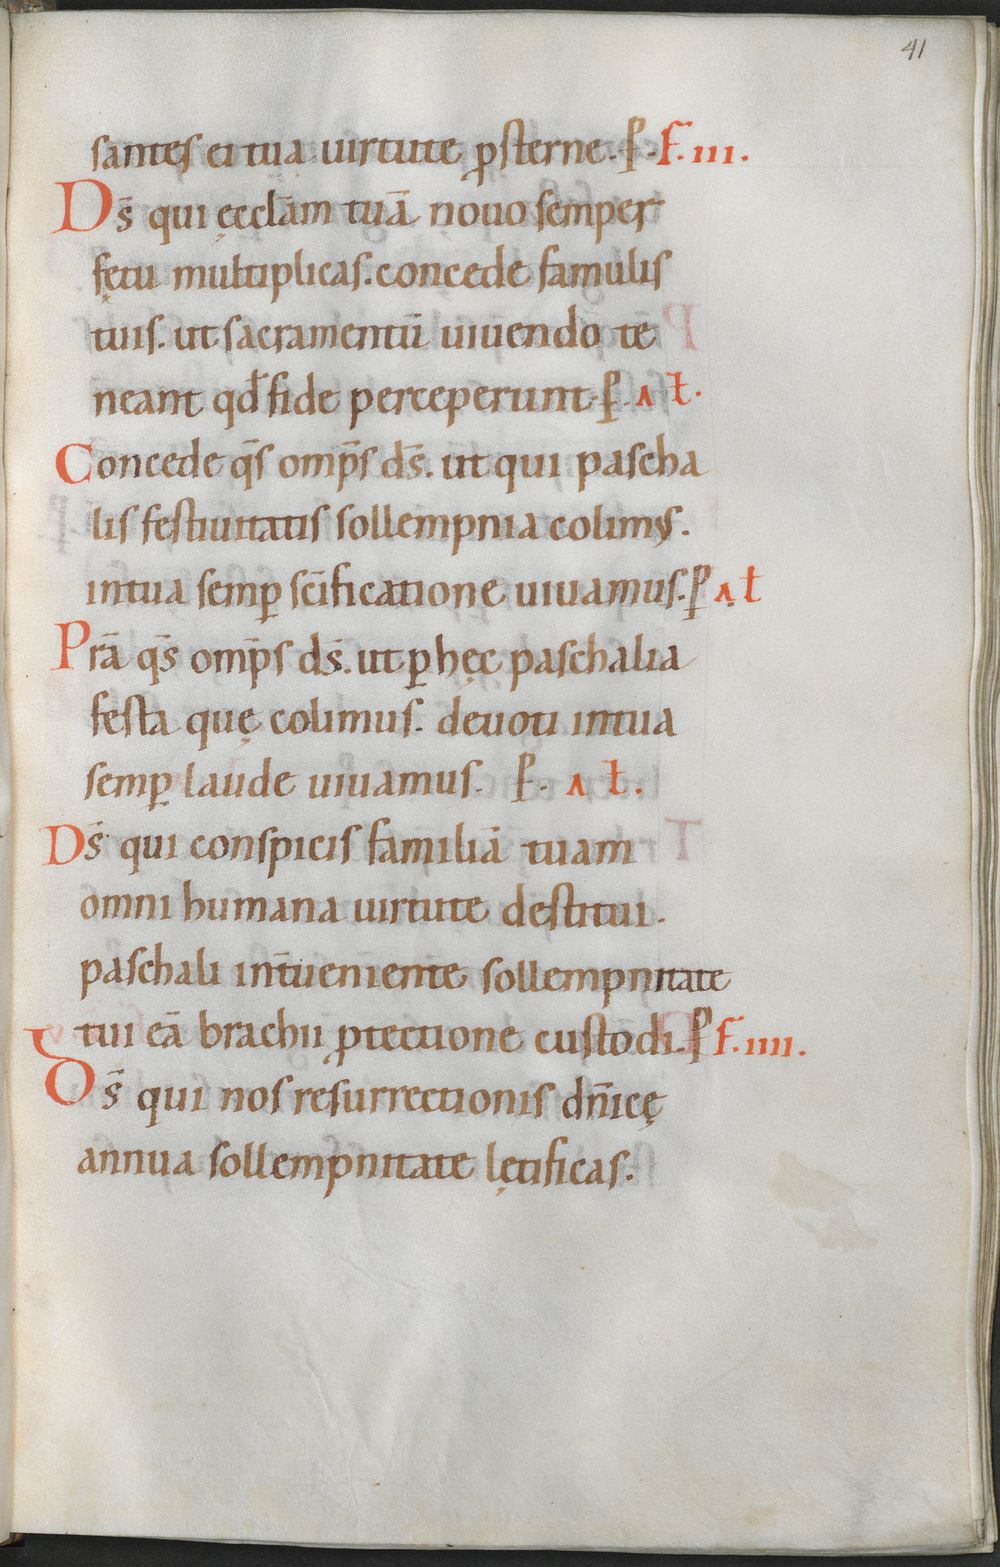 41
santes ei tua uirtute ꝓsterne. ꝑ. F. III.
Ds̄ qui ęccl̄am tuā nouo semper
fętu multiplicas. concede famulis
tuis. ut sacramentū uiuendo te
neant qd̄ fide perceperunt. ꝑ. Ał.
Concede qs̄ omp̄s ds̄. ut qui pascha
lis festiuitatis sollempnia colimus.
in tua semꝑ sc̄ificatione uiuamus. ꝑ Ał
Prā qs̄ omp̄s ds̄. ut ꝑ hęc paschalia
festa quę colimus. deuoti in tua
semꝑ laude uiuamus. ꝑ. Ał.
Ds̄ qui conspicis familiā tuam
omni humana uirtute destitui.
paschali int̄ueniente sollempnitate
tui eā brachii ꝓtectione custodi. ꝑ F. IIII.
Ds̄ qui nos resurrectionis dn̄icę
annua sollempnitate lętificas.